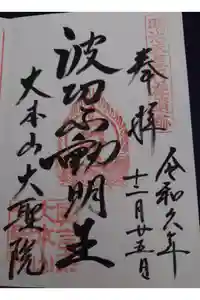 奉拝
令和六年
十一月廿五日
波切不動明王
大本山大聖院